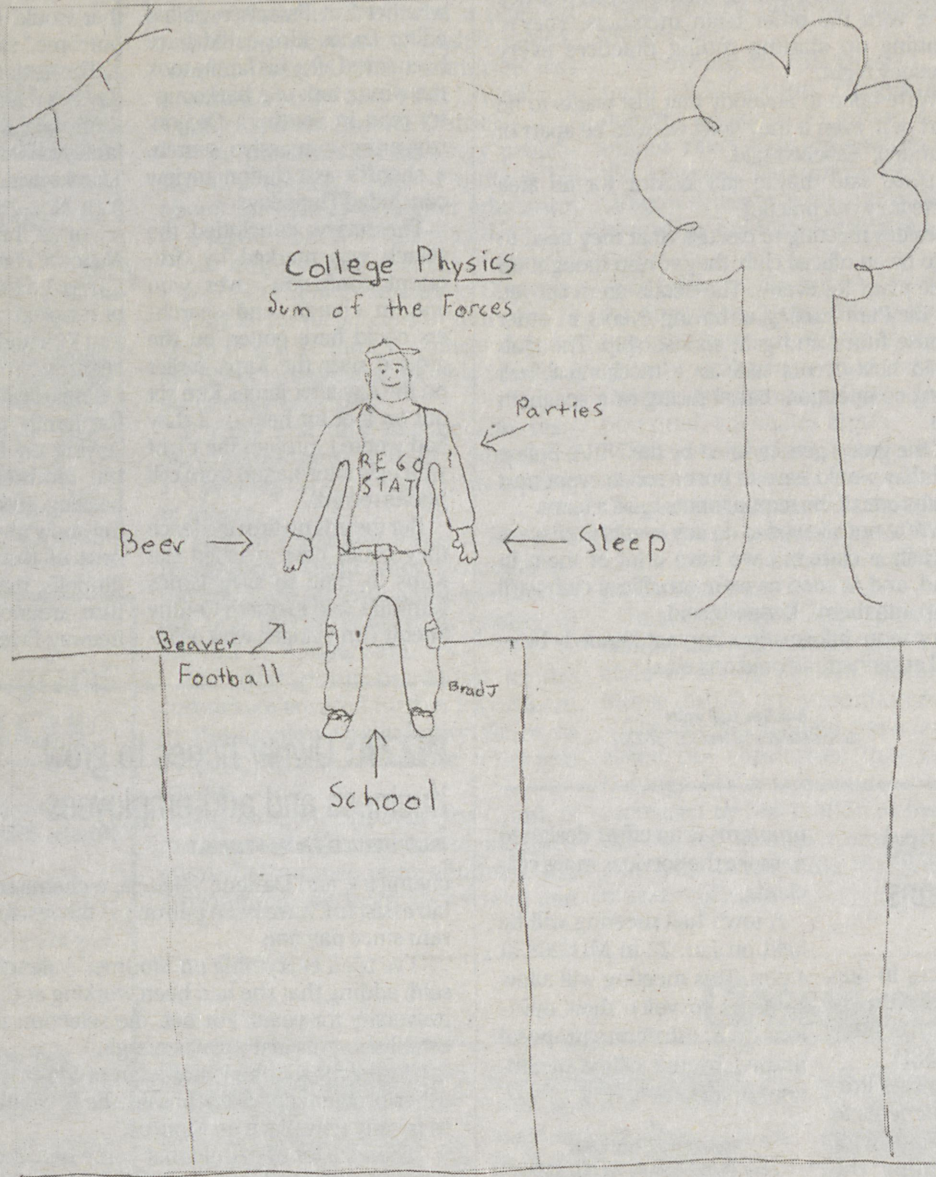 College Physics
Sum of the Forces
Parties
REGO
STAT
Beer
Sleep
Beaver
Football
BradJ
School